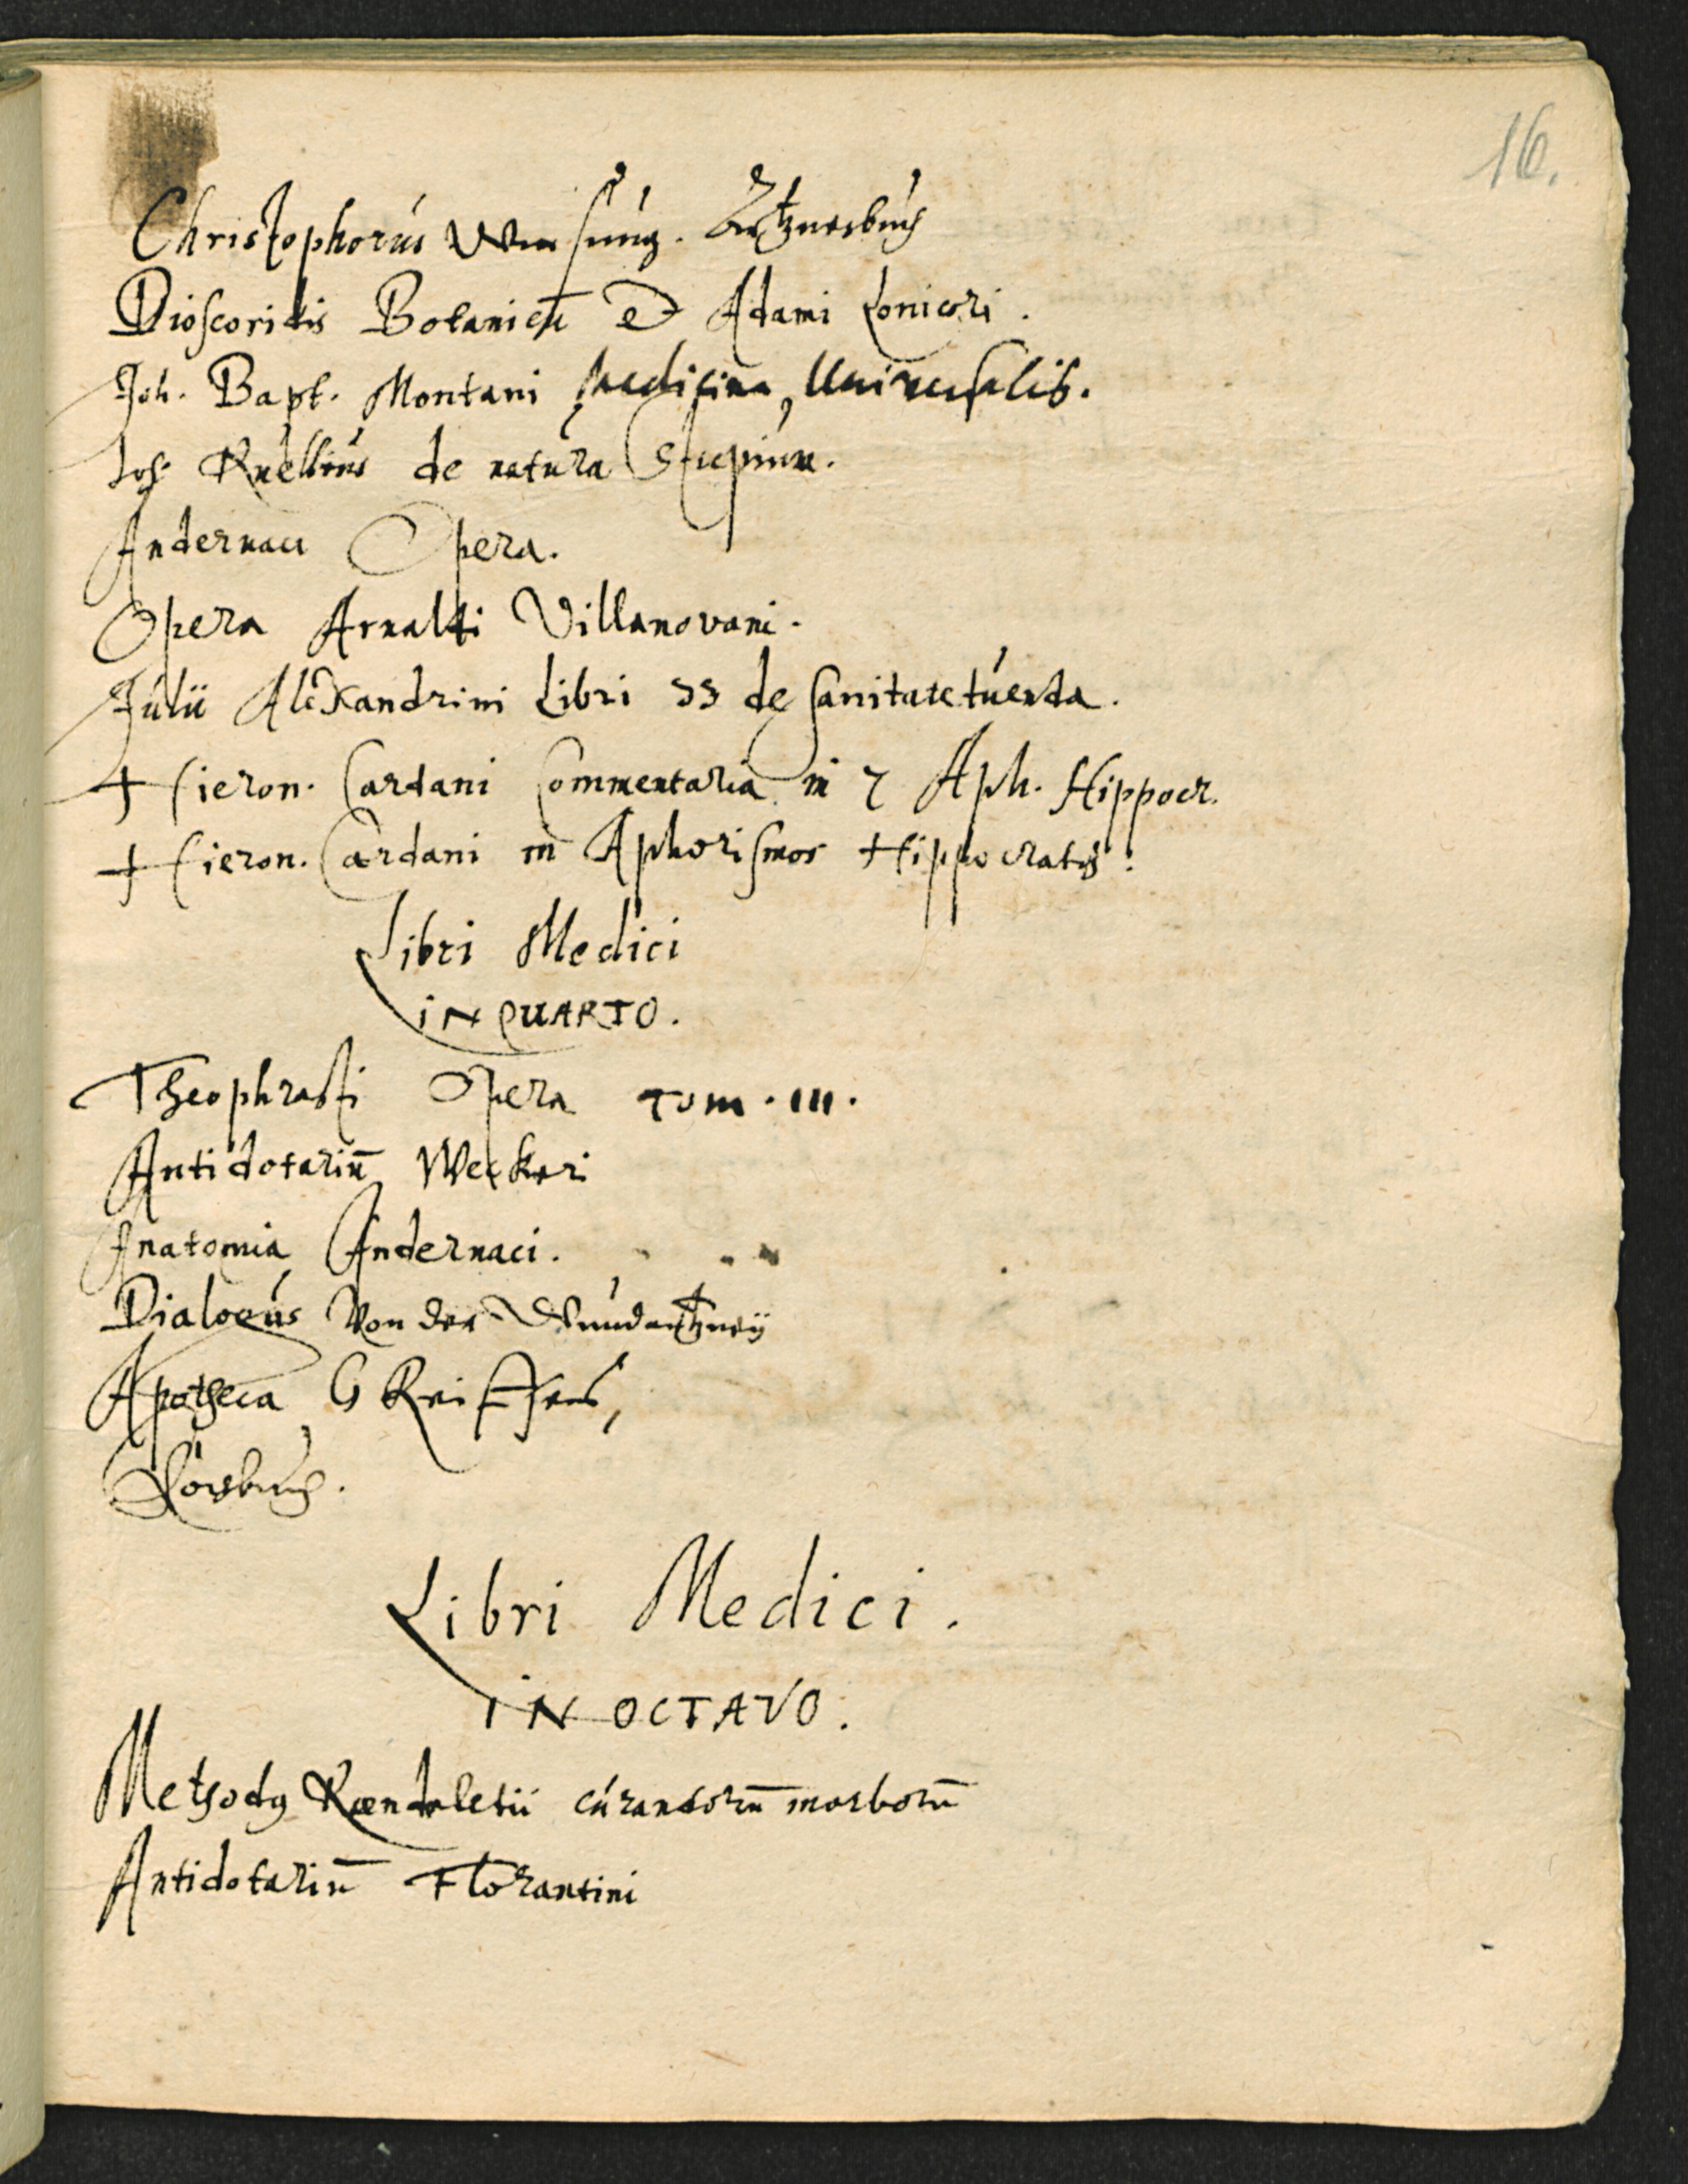 16.
Christophorús Wirsúng. Artzneÿbúch
Dioscoridis Botanicū et Adami Loniceri.
Joh. Bapt. Montani Medicina Universalis.
Joh. Ruellius de natura Stirpium.
Andernaci Opera.
Opera Arnaldi Villanovani.
Júlii Alexandrini Libri 33 de sanitate túenda.
Hieron. Cardani Commentaria in 7 Aph. Hippocr.
Hieron. Cardani in Aphorismos Hippocratis.
Libri Medici
IN QUARTO.
Theophrasti Opera Tom. III.
Antidotariū Weckeri
Anatomia Andernaci.
Dialogús Von der Wúndartzneÿ
Apotheca G Reiffens,
Libri Medici.
IN OCTAVO.
Methodꝯ Rondeletii cúrandorū morborū
Antidotariū Florantini